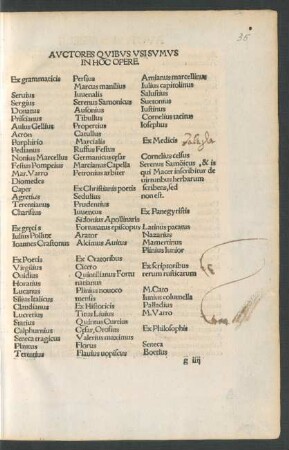 36
AVCTORES QVIBVS VSI SVMVS
IN HOC OPERE.
Ex grammaticis
Seruius
Sergius
Donatus
Priscianus
Aulus Gellius
Acron
Porphirio
Pedianus
Nonius Marcellus
Festus Pompeius
Mar. Varro
Diomedes
Caper
Agretius
Terentianus
Charisius
Ex grecis
Iulius Pollux
Ioannes Crastonus
Ex Poetis
Virgilius
Ouidius
Horatius
Lucanus
Silius Italicus
Claudianus
Lucretius
Statius
Calphurnius
Seneca tragicus
Plautus
Terentius
Persius
Marcus manilius
Iuuenalis
Serenus Samonicus
Ausonius
Tibullus
Propertius
Catullus
Marcialis
Ruffus Festus
Germanicus cesar
Marcianus Capella
Petronius arbiter
Ex Christianis poetis
Sedulius
Prudentius
Iuuencus
Sidonius Apollinaris
Fortunatus episcopus
Arator
Alcimus Auitus
Ex Oratoribus
Cicero
Quintilianus
Plinius nouoco
mensis
Ex Historicis
Titus Liuius
Quintus Curtius
Cesar, Orosius
Valerius maximus
Florus
Flauius uopiscus
Amianus marcellinus
Iulius capitolinus
Salustius
Suetonius
Iustinus
Cornelius tacitus
Iosephus
Ex Medicis
Cornelius celsus
Serenus Samonicus, & is
qui Macer inscribitur de
uirtutibus herbarum
scribens, sed
non est.
Ex Panegyristis
Latinus pacatus
Nazarius
Mamertinus
Plinius Iunior
Ex scriptoribus
rerum rusticarum
M. Cato
Iunius columella
Palladius
M. Varro
Ex Philosophis
Seneca
Boetius
g iiij